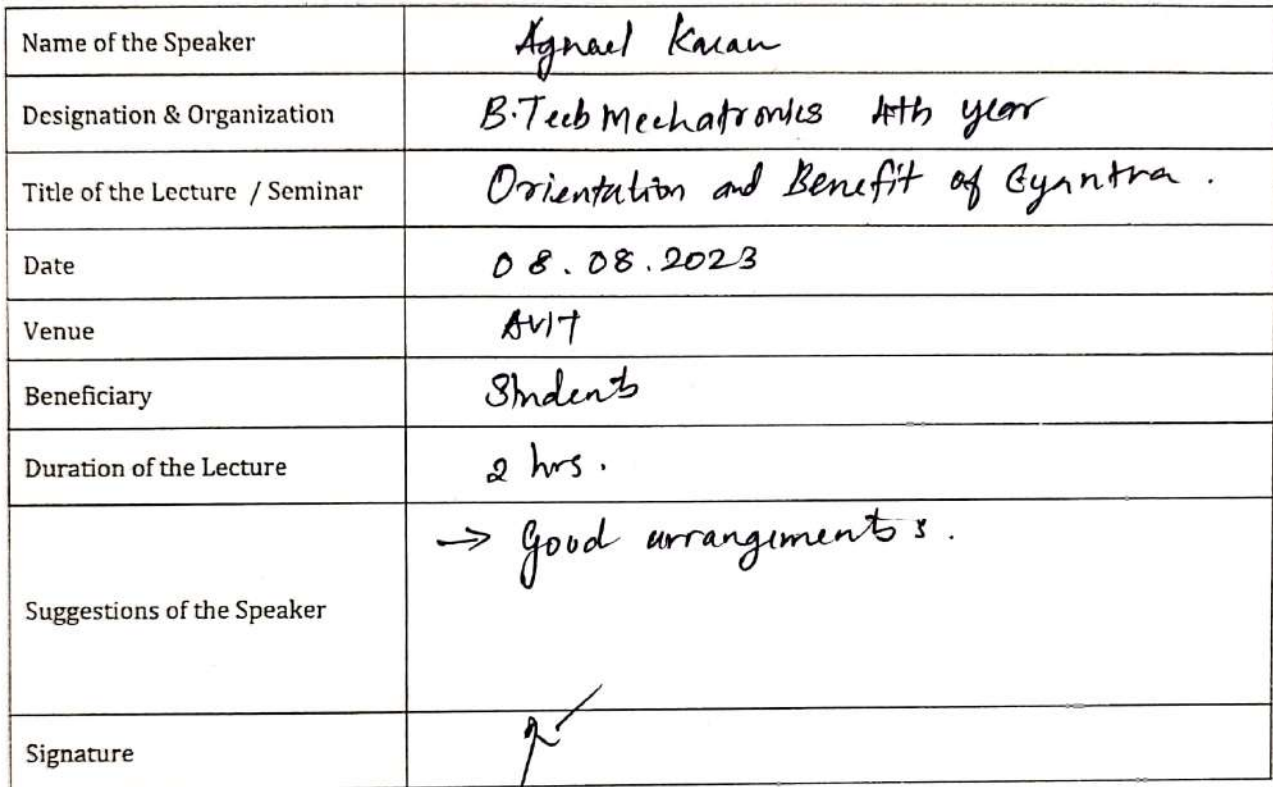 Name of the Speaker Agnael Karan
Designation & Organization B.Tech Mechatronics 4th year
Title of the Lecture / Seminar Orientation and Benefit of Eyantra.
Date 08.08.2023
Venue AVIT
Beneficiary Students
Duration of the Lecture 2 hrs.
Suggestions of the Speaker → Good arrangements.
Signature